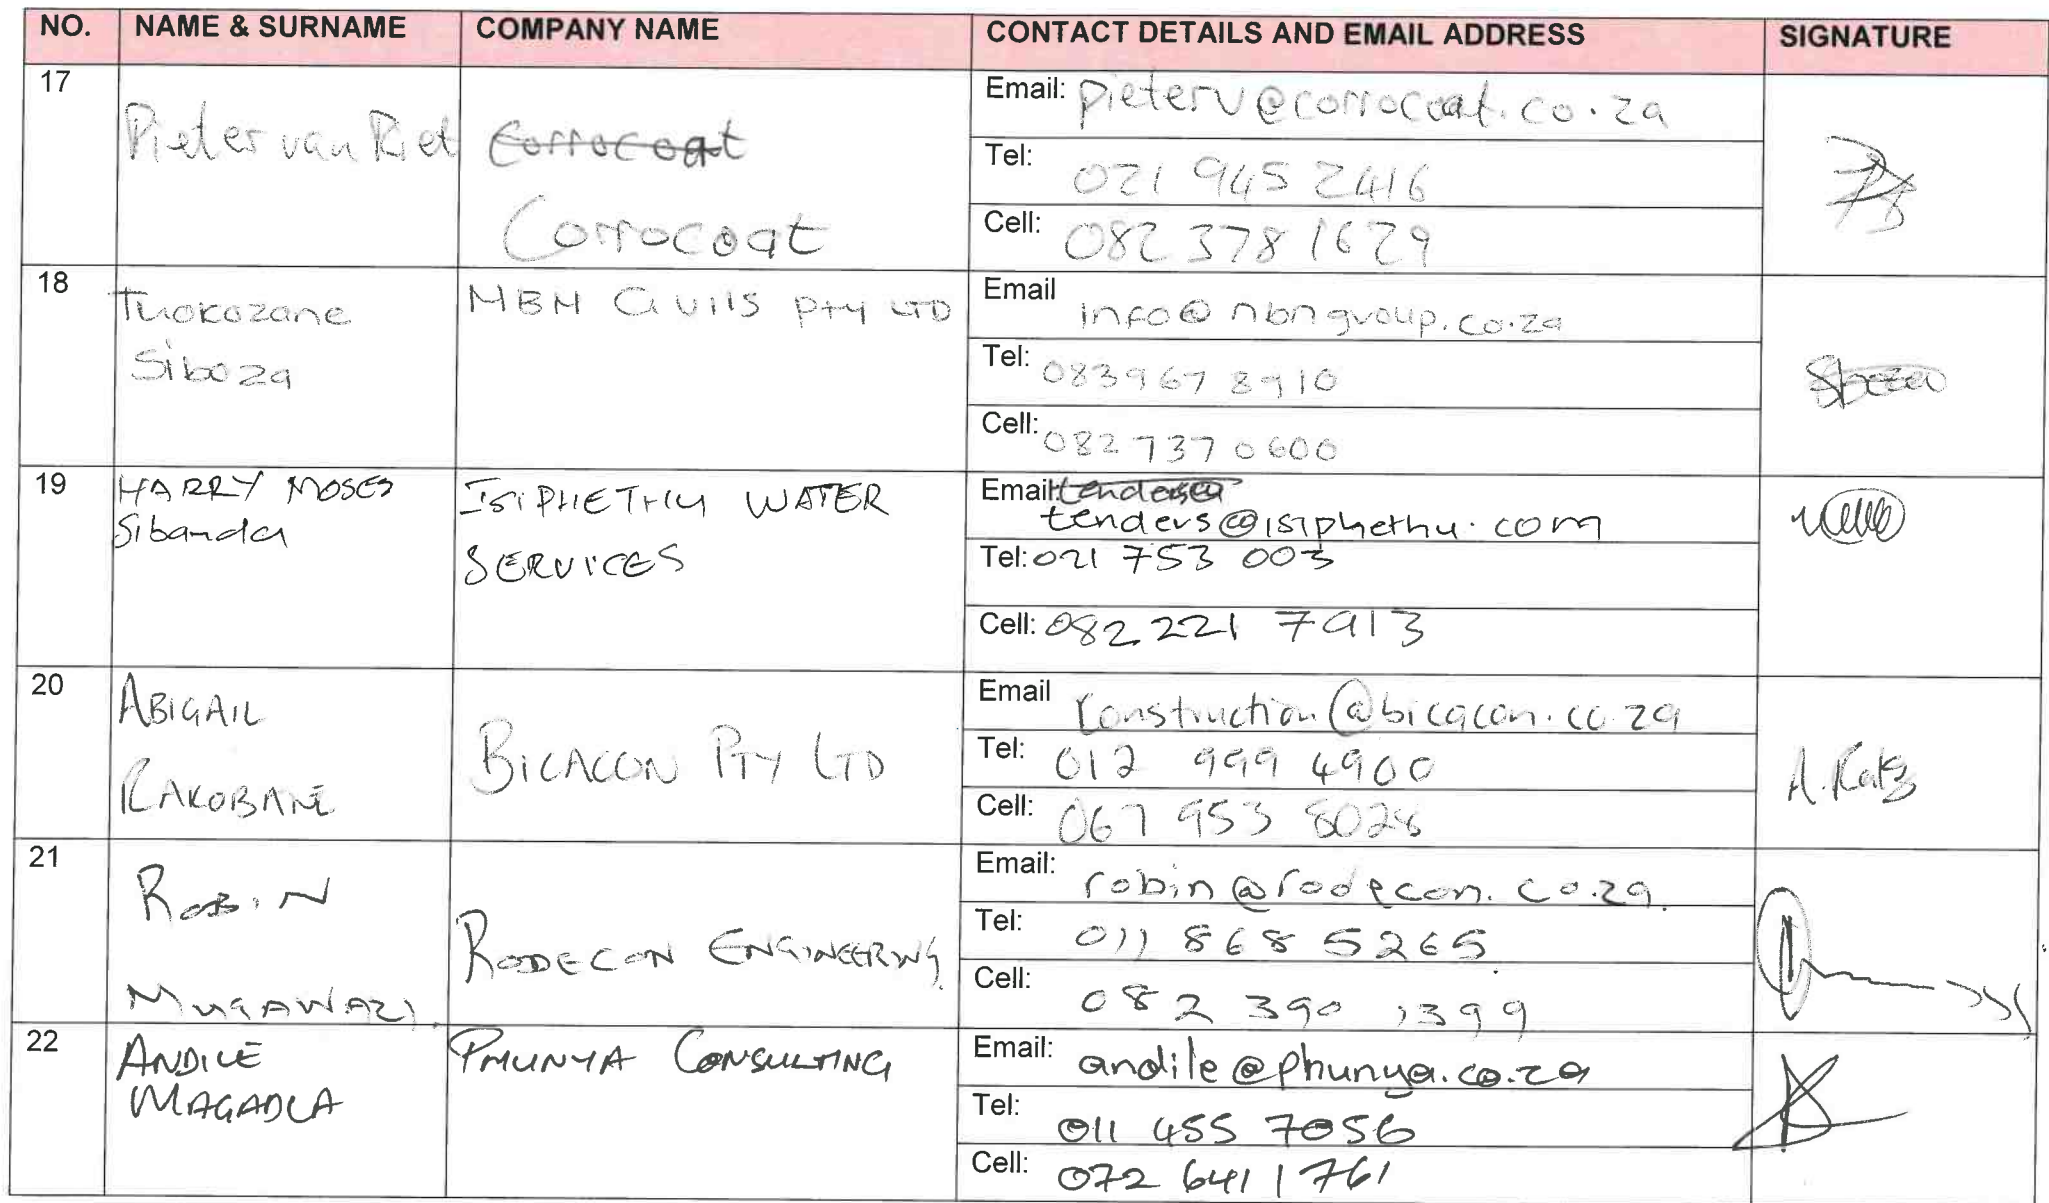 NO. NAME & SURNAME COMPANY NAME CONTACT DETAILS AND EMAIL ADDRESS SIGNATURE
17
Pieter van Riet
Corrocoat
Corrocoat
Email: pieterv@corrocoat.co.za
Tel: 021 945 2416
Cell: 082 378 1629
18
Thokozane
Siboza
NBN Civils pty LTD
Email info@nbngroup.co.za
Tel: 083 967 8910
Cell: 082 737 0600
19
HARRY MOSES
Sibanda
ISIPHETHU WATER
SERVICES
Email: tenders@
tenders@isiphethu.com
Tel: 021 753 003
Cell: 082 221 7913
20
ABIGAIL
RAKOBANE
BICACON PTY LTD
Email construction@bicacon.co.za
Tel: 012 999 4900
Cell: 067 953 8028
21
ROBIN
MUGAWAZI
RODECON ENGINEERING
Email: robin@rodecon.co.za
Tel: 011 868 5265
Cell: 082 390 1399
22
ANDILE
MAGADLA
PHUNYA CONSULTING
Email: andile@phunya.co.za
Tel: 011 455 7056
Cell: 072 641 1761